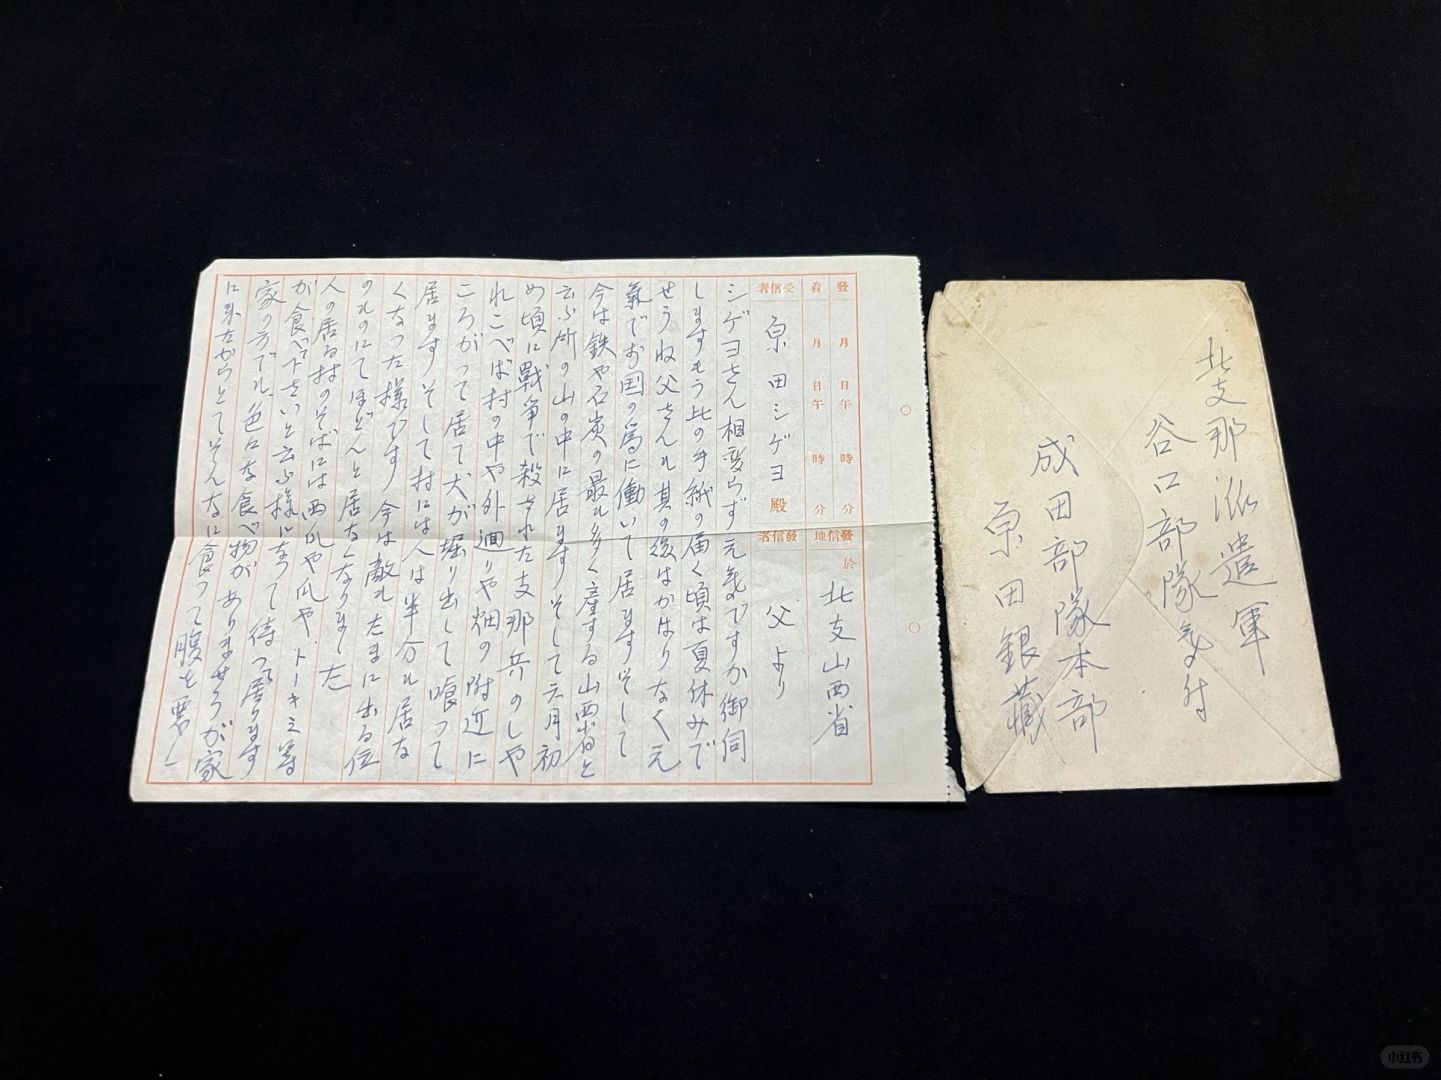 發 月 日午 時 分
着 月 日午 時 分
發信地 於 北支山西省
受信者 原田シゲヨ 殿
發信者 父より
シゲヨさん相変らず元気ですか御伺
しますもう此の手紙の届く頃は夏休みで
せうね父さんも其の後はかはりなく元
氣でお国の為に働いて居ますそして
今は鉄や石炭の最も多く産する山西省と
云ふ所の山の中に居ますそして六月初
め頃に戰争で殺された支那兵のしや
れこべば村の中や外廻りや畑の附近に
ころがつて居て犬が堀り出して喰つて
居ますそして村には人は半分も居な
くなつた様です今は敵もたまに出る位
のものにてほどんと居なくなりました
人の居る村のそばには西瓜や瓜やトーキミ等
が食べて下さいと云ふ様になつて待つて居ります
家の方でも色々な食べ物がありませうが家
に来たからとてそんなに食つて腹を悪し
北支那派遣軍
谷口部隊気付
成田部隊本部
原田銀藏
小红书